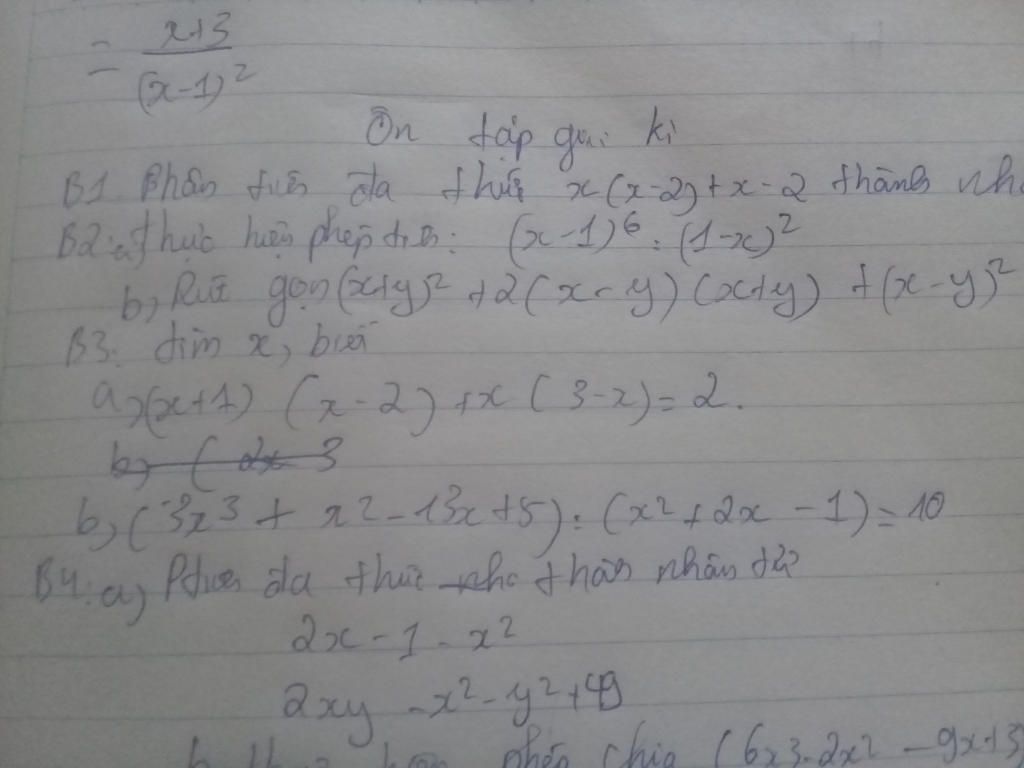 = x+3
(x-1)²
Ôn tập giữa kì
B1. Phân tích đa thức x(x-2)+x-2 thành nh
B2: a, thực hiện phép tính: (x-1)⁶ : (1-x)²
b, Rút gọn (x+y)² + 2(x-y)(x+y) + (x-y)²
B3: tìm x, biết
a, (x+1) (x-2) + x(3-x) = 2.
b, ( 2x 3
b, (3x³ + x² - 13x + 5) : (x² + 2x - 1) = 10
B4: a, đa thức thành nhân tử
2x - 1 - x²
2xy - x² - y² + 49
phép chia (6x3-2x² - 9x+3)